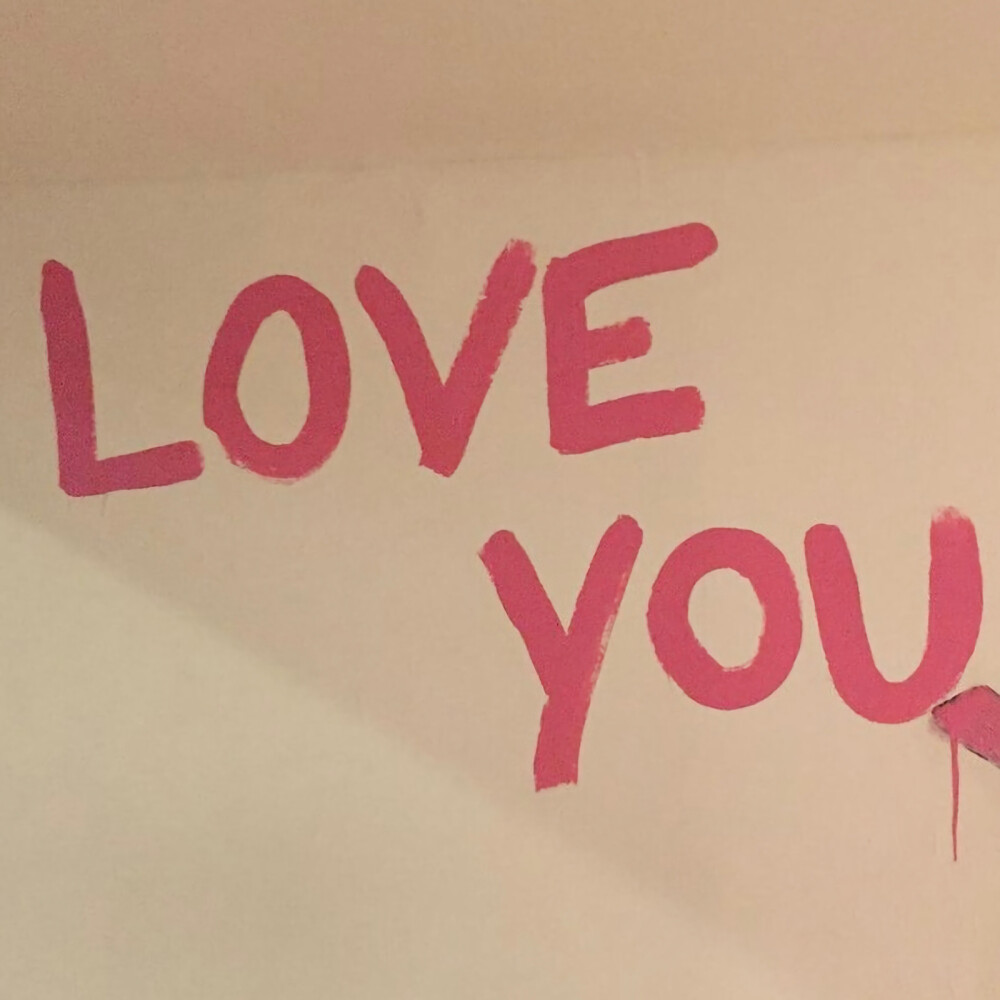 LOVE
YOU